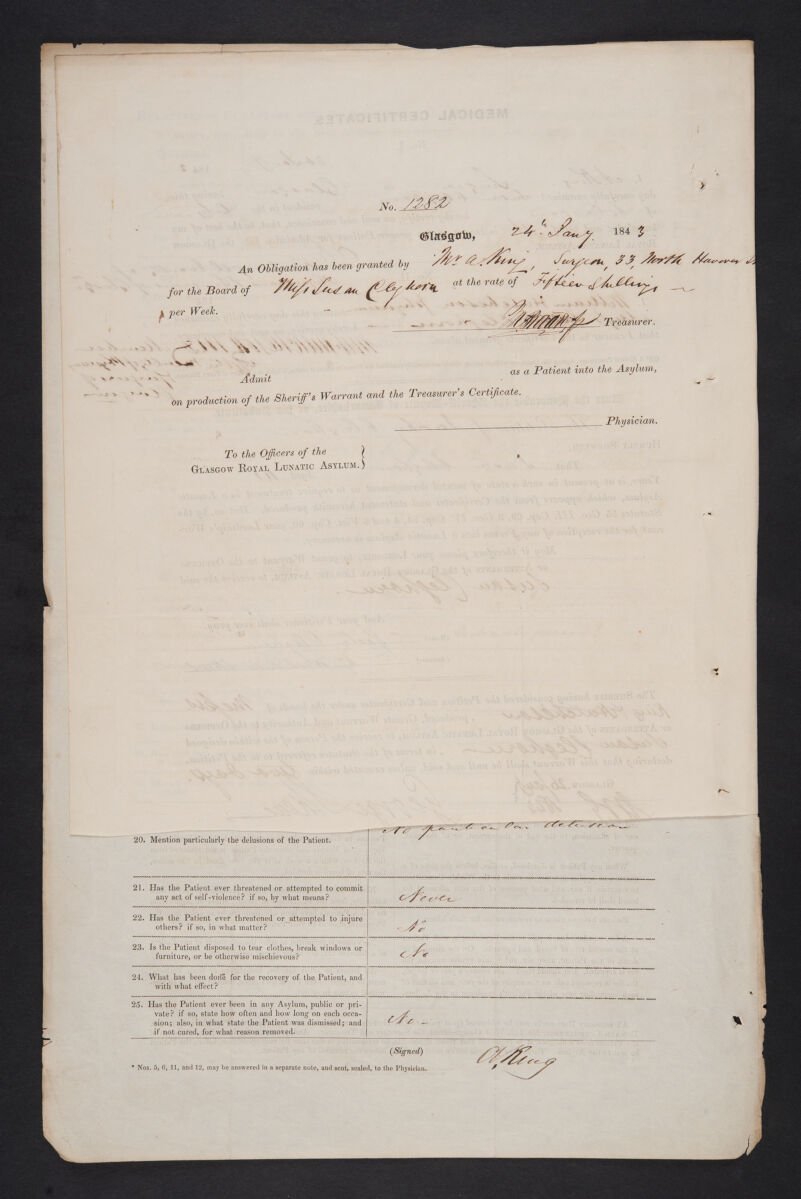 No. 1282
Glasgow, 24th Jany. 1843
An Obligation has been granted by Mr. A. King, Surgeon, 33, North Hanover St
for the Board of Miss Susan Cleghorn at the rate of Fifteen Shillings
per Week.
Treasurer.
Admit as a Patient into the Asylum,
on production of the Sheriff's Warrant and the Treasurer's Certificate.
Physician.
To the Officers of the
Glasgow Royal Lunatic Asylum.
20. Mention particularly the delusions of the Patient. No particular delusion
21. Has the Patient ever threatened or attempted to commit
any act of self-violence? if so, by what means? Never
22. Has the Patient ever threatened or attempted to injure
others? if so, in what matter? No
23. Is the Patient disposed to tear clothes, break windows or
furniture, or be otherwise mischievous? No
24. What has been done for the recovery of the Patient, and
with what effect?
25. Has the Patient ever been in any Asylum, public or pri-
vate? if so, state how often and how long on each occa-
sion; also, in what state the Patient was dismissed; and
if not cured, for what reason removed. No
(Signed) A. King
* Nos. 5, 6, 11, and 12, may be answered in a separate note, and sent, sealed, to the Physician.